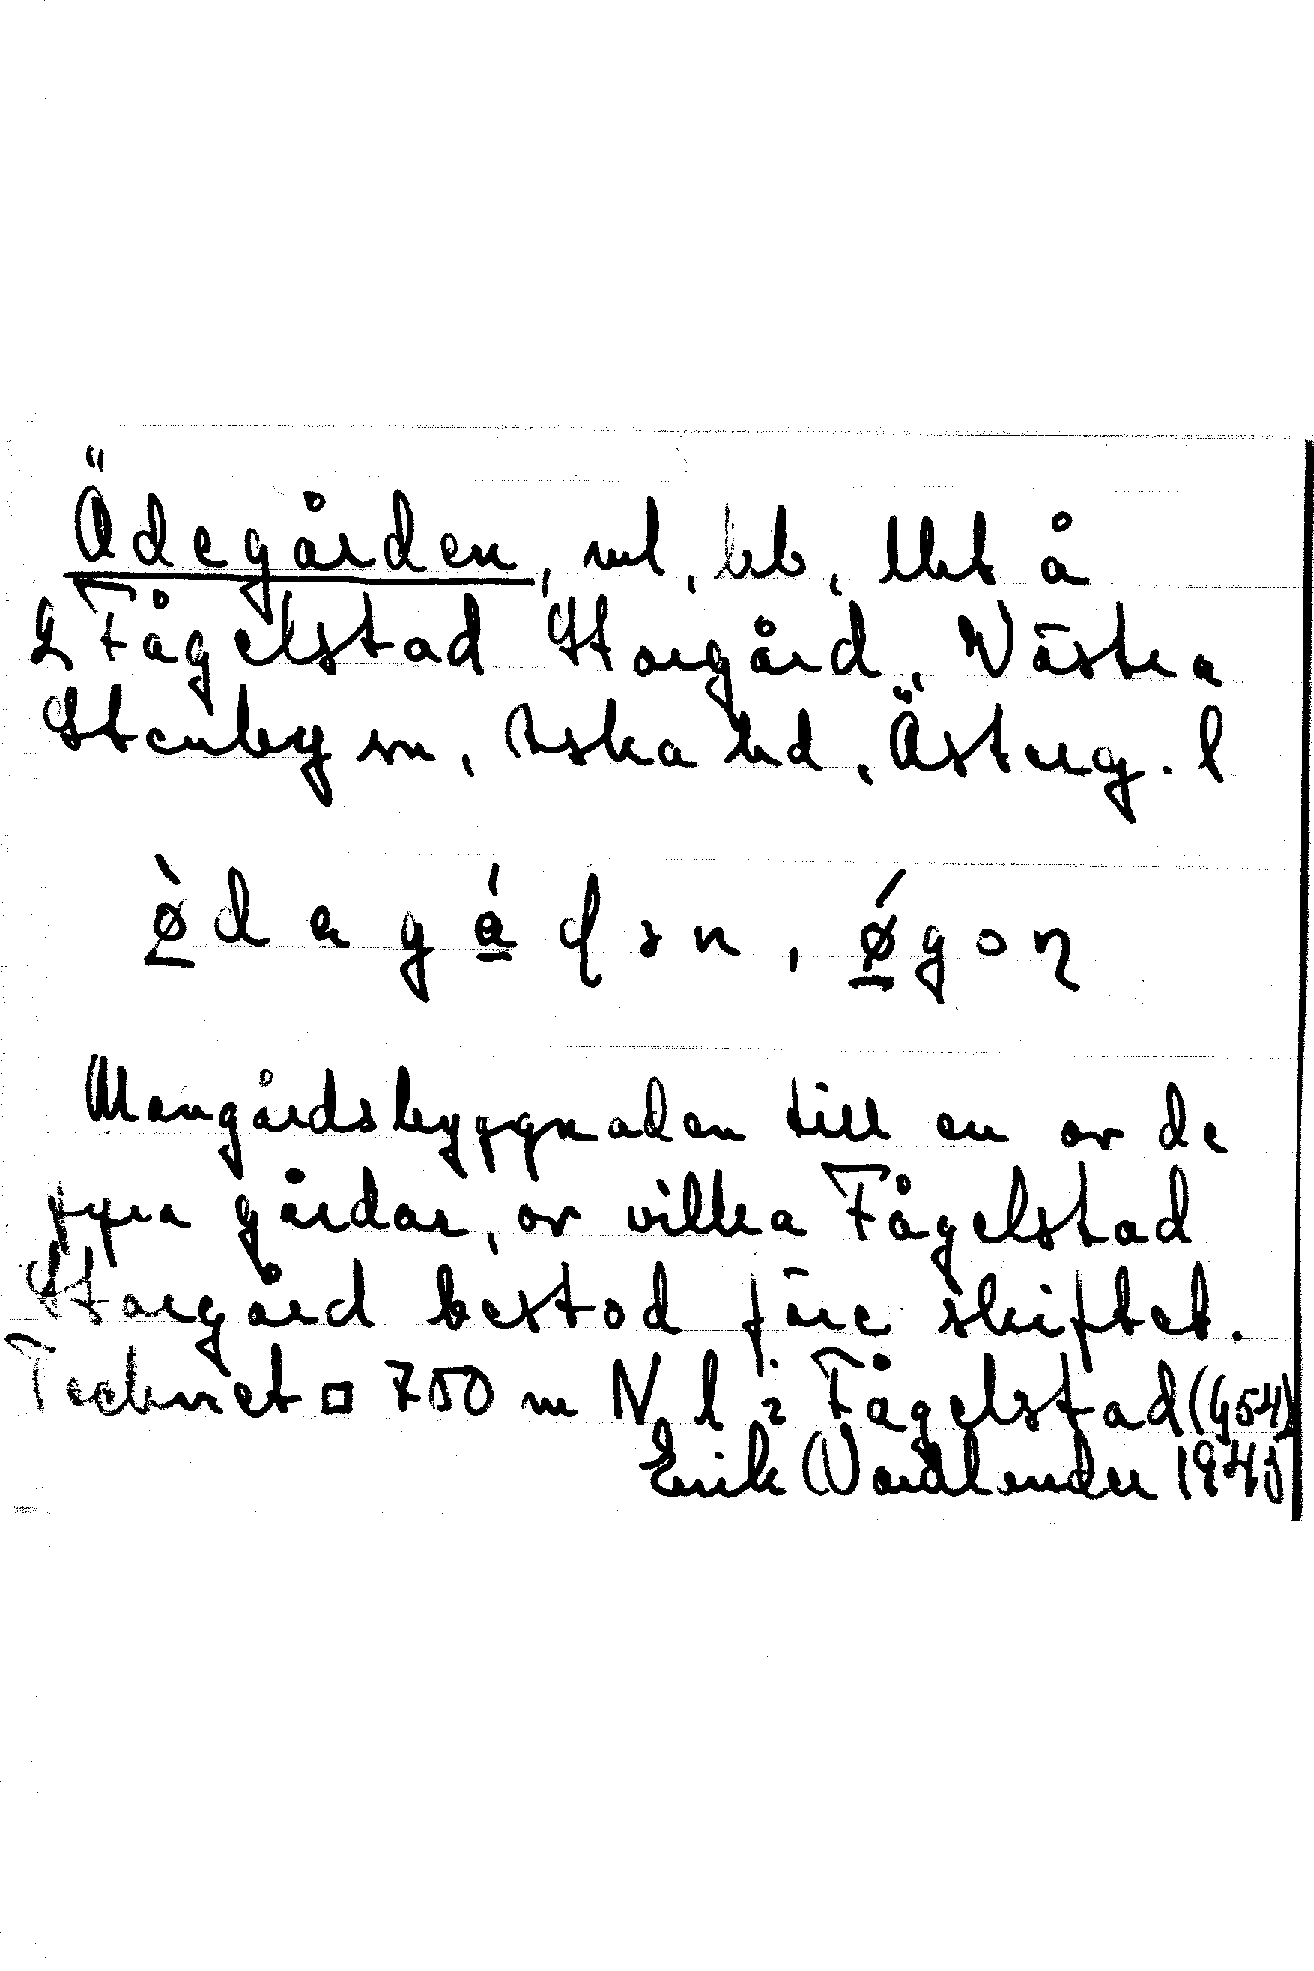 Ödegården, ml, bb, lht å
L Fågelstad Storgård, Västra
Stenby sn, Aska hd, Österg. l
ø̀dagáɖən, ǿgoŋ
Mangårdsbyggnaden till en av de
fyra gårdar, av vilka Fågelstad
Storgård bestod före skiftet.
Tecknet □ 750 m N l i Fågelstad (G54)
Erik Vardlender 1945